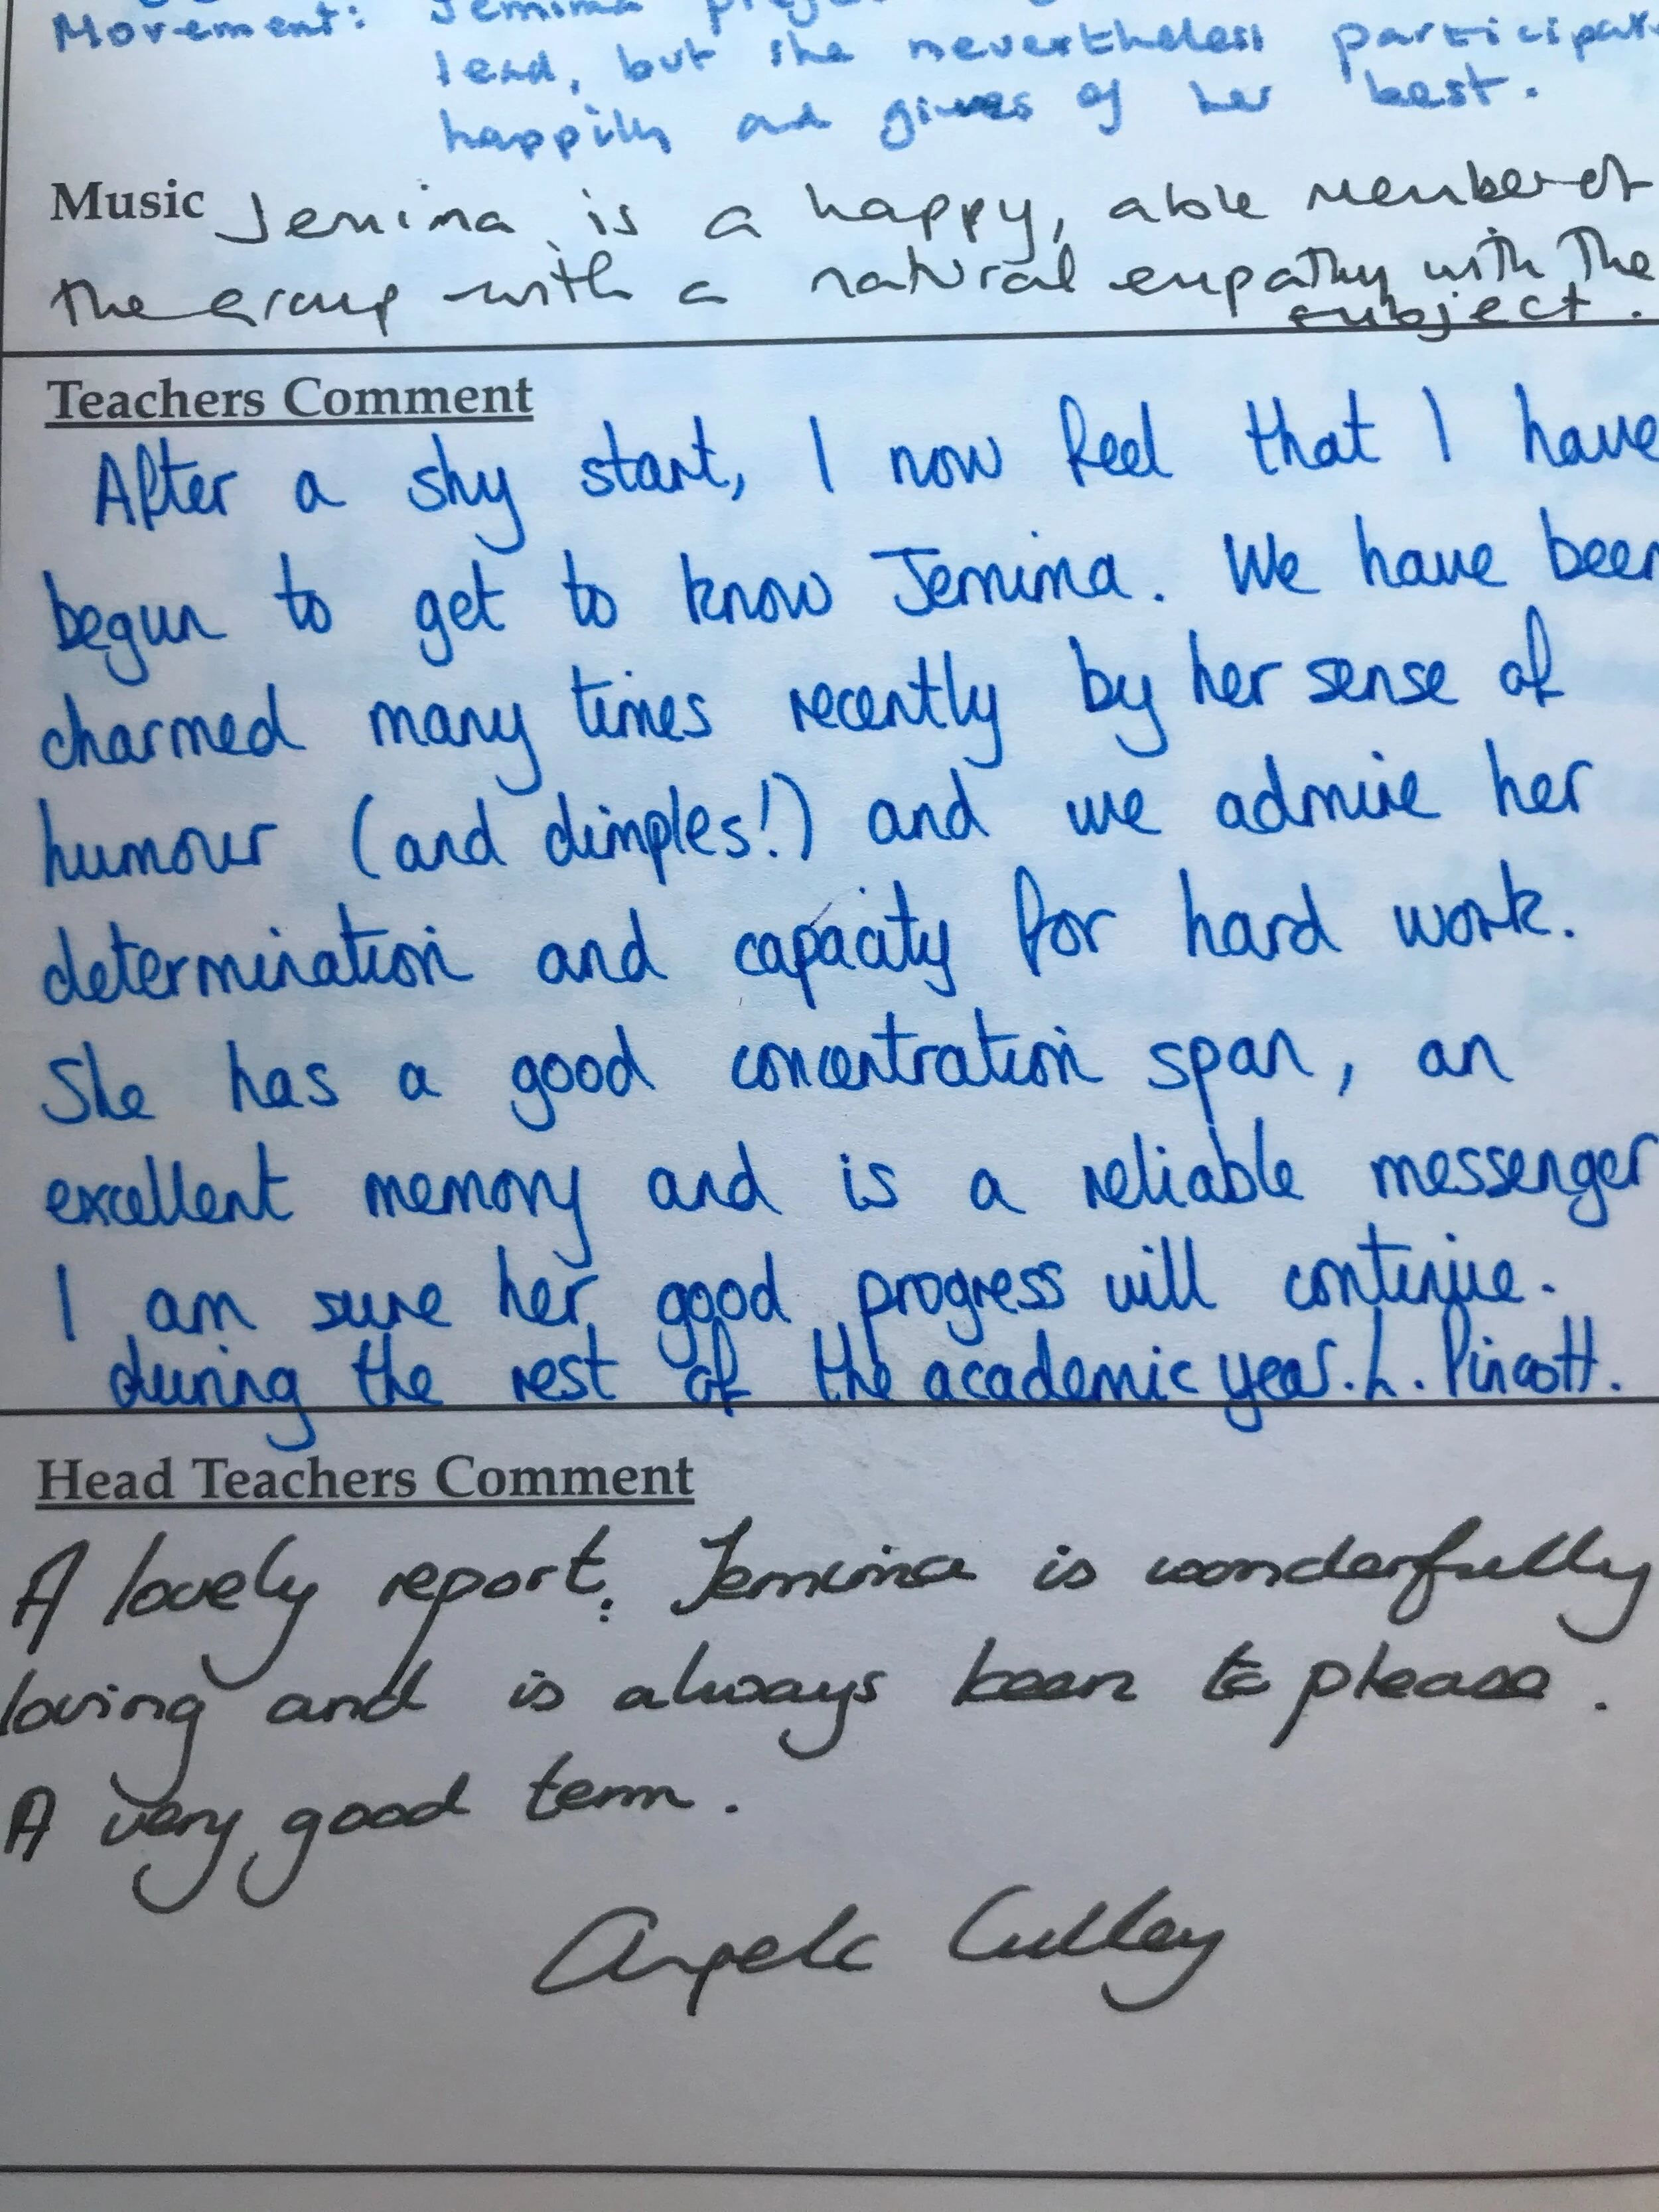 Movement: Jemima
lead, but she nevertheless participat
happily and gives of her best.
Music Jemima is a happy, able member of
the group with a natural empathy with the
subject.
Teachers Comment
After a shy start, I now feel that I have
begun to get to know Jemima. We have been
charmed many times recently by her sense of
humour (and dimples!) and we admire her
determination and capacity for hard work.
She has a good concentration span, an
excellent memory and is a reliable messenger
I am sure her good progress will continue.
during the rest of the academic year. L. Pincott.
Head Teachers Comment
A lovely report: Jemima is wonderfully
loving and is always keen to please.
A very good term.
Angela Culley